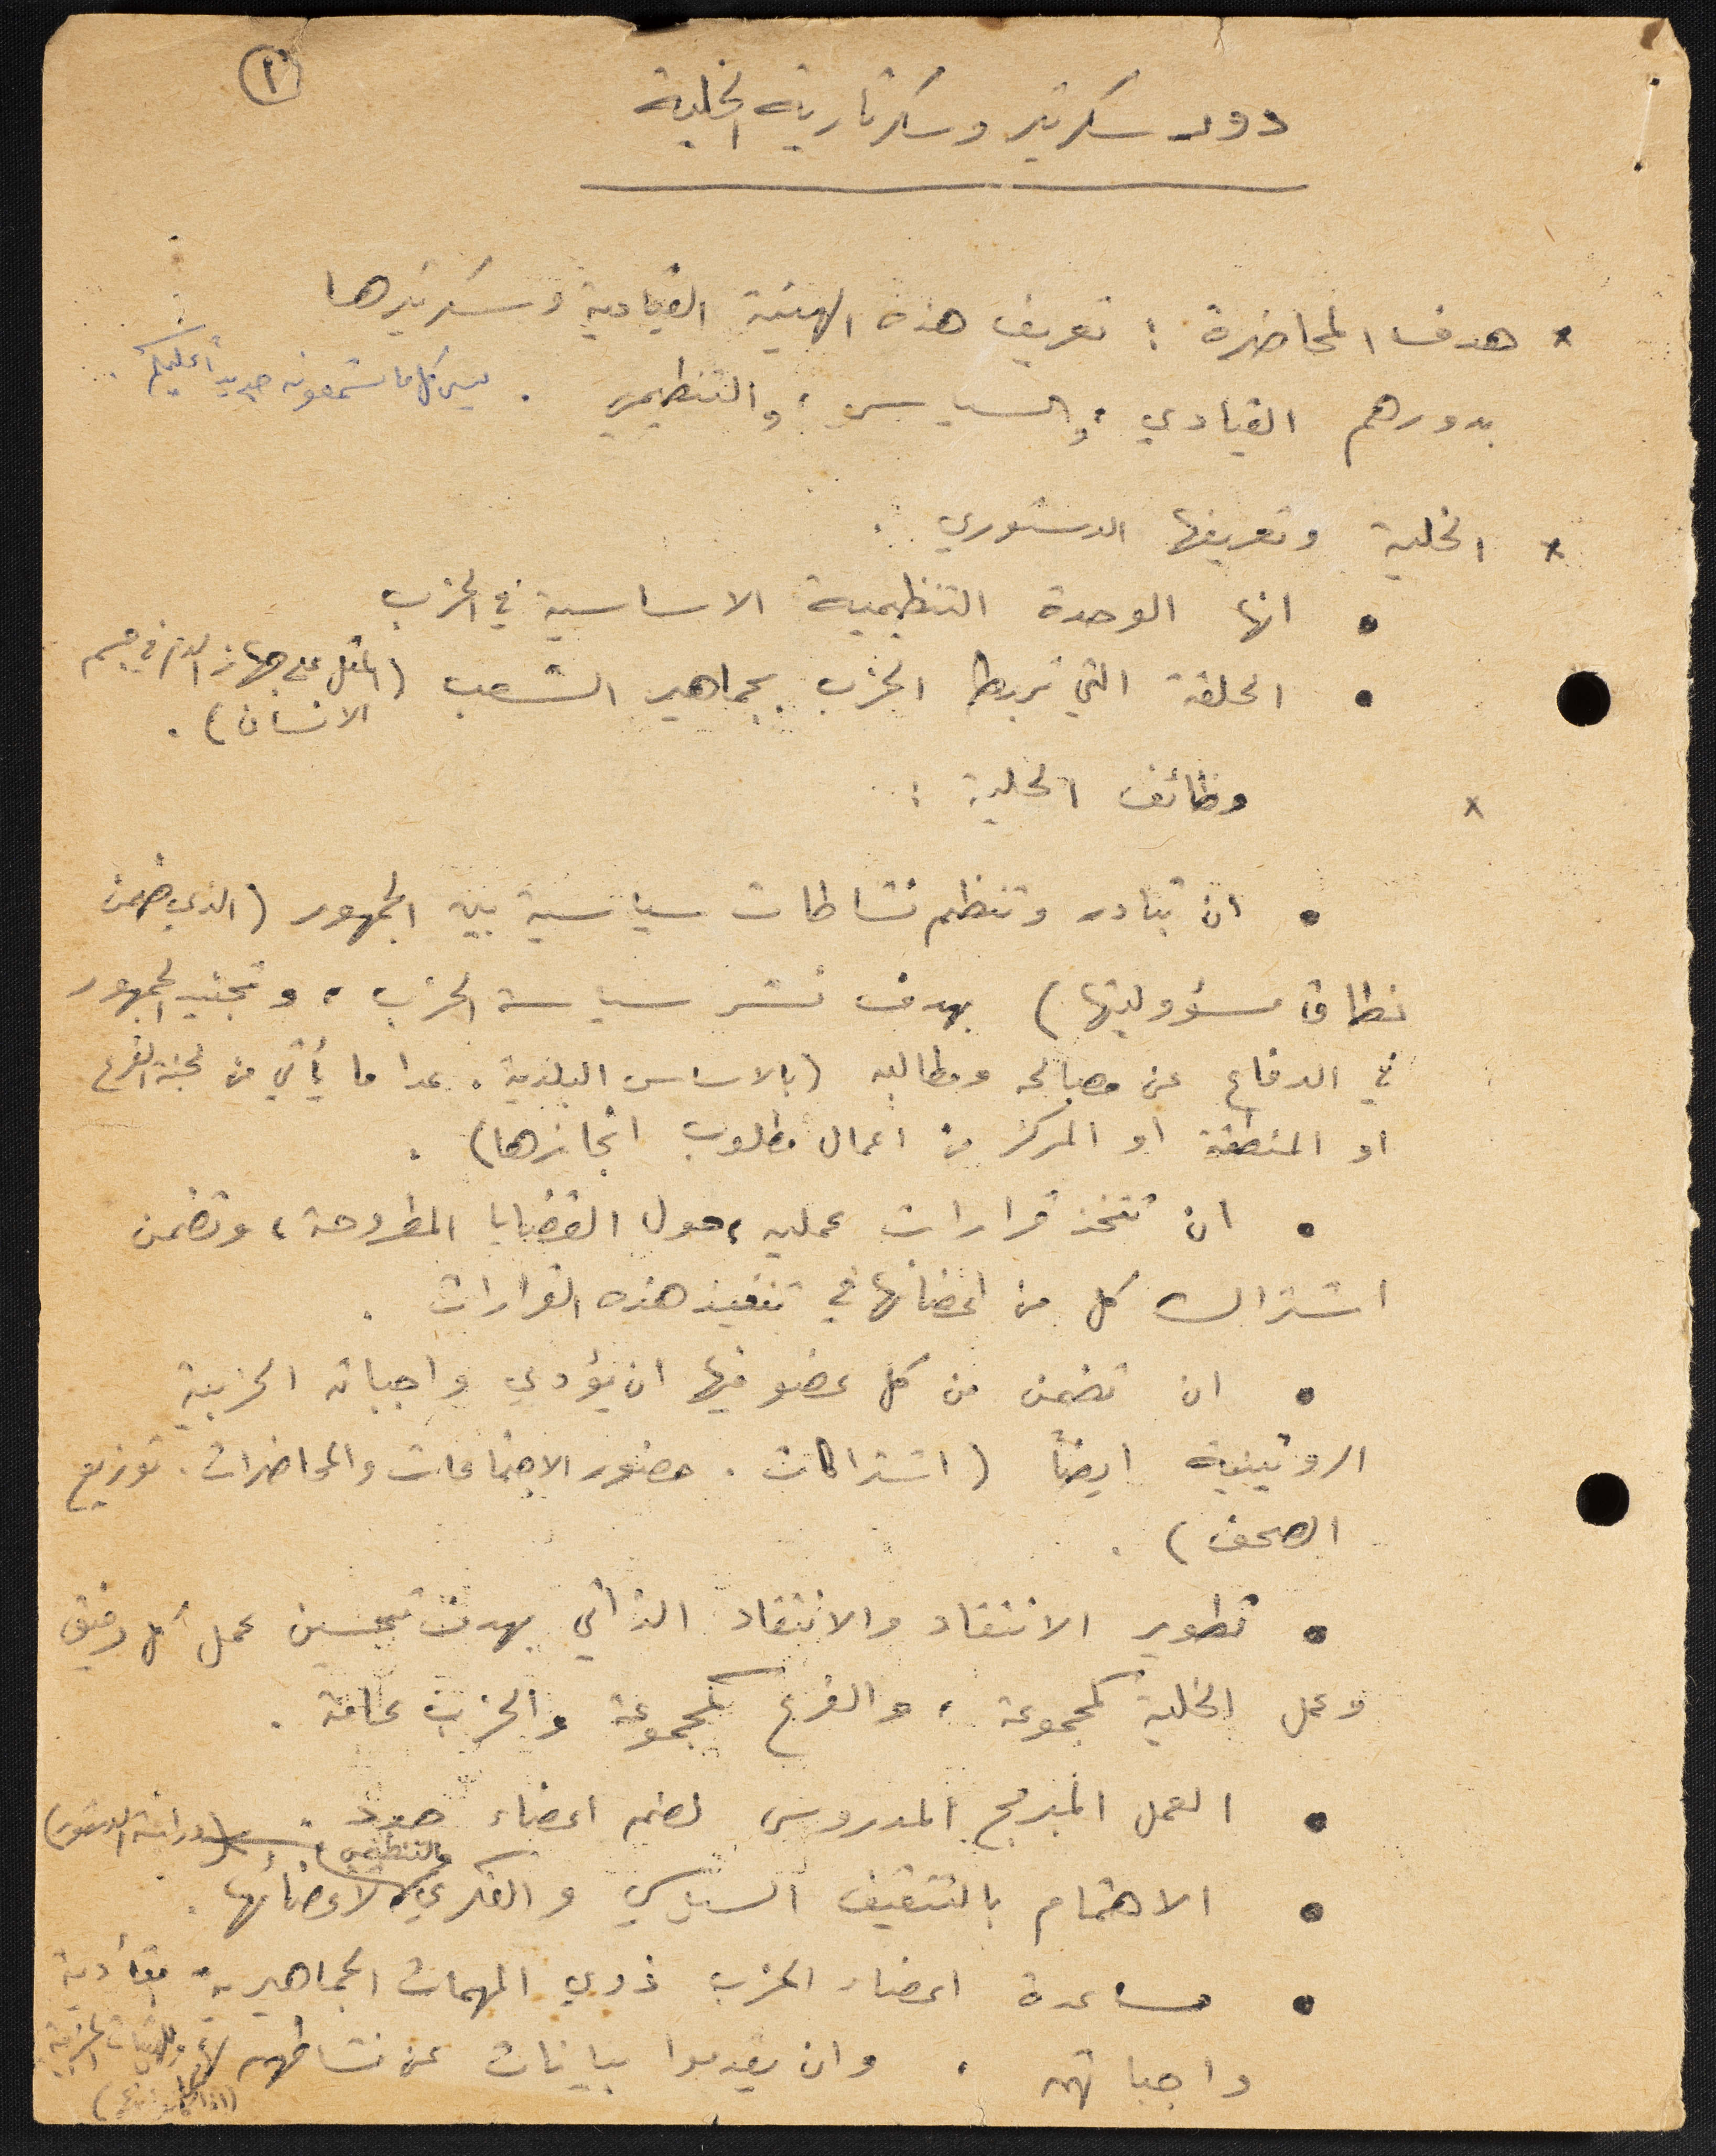 ١
دور سكرتير وسكرتارية الخلية
* هدف المحاضرة : تعريف هذه الهيئة القيادية وسكرتيرها
بدورهم القيادي ، والسياسي ، والتنظيمي . ليس كل ما ستسمعونه جديداً عليكم .
* الخلية وتعريفها الدستوري .
• انها الوحدة التنظيمية الاساسية في الحزب
• الحلقة التي تربط الحزب بجماهير الشعب (المثل على جهاز الدم في جسم
الانسان) .
x وظائف الخلية :
• ان تبادر وتنظم نشاطات سياسية بين الجمهور (الذي ضمن
نطاق مسؤوليتها) بهدف نشر سياسة الحزب ، وتجنيد الجمهور
في الدفاع عن مصالحه ومطالبه (بالاساس البلدية . عدا ما يأتي من لجنة الفرع
او المنطقة او المركز من اعمال مطلوب انجازها) .
• ان تتخذ قرارات عمليه ، حول القضايا المطروحة ، وتضمن
اشتراك كل من اعضائها في تنفيذ هذه القرارات .
• ان تضمن من كل عضو فيها ان يؤدي واجباته الحزبية
الروتينية ايضاً (اشتراكات . حضور الاجتماعات والمحاضرات . توزيع
الصحف) .
• تطوير الانتقاد والانتقاد الذاتي بهدف تحسين عمل كل رفيق
وعمل الخلية كمجموعة ، والفرع كمجموعة والحزب عامة .
• العمل المبرمج المدروس لضم اعضاء جدد .
• الاهتمام بالتثقيف السياسي والفكري والتنظيمي لأعضائها . (دراسة الدستور)
• مساعدة اعضاء الحزب ذوي المهمات الجماهيرية بتأدية
واجباتهم ، وان يقدموا بيانات عن نشاطهم لها وللهيئات الحزبية